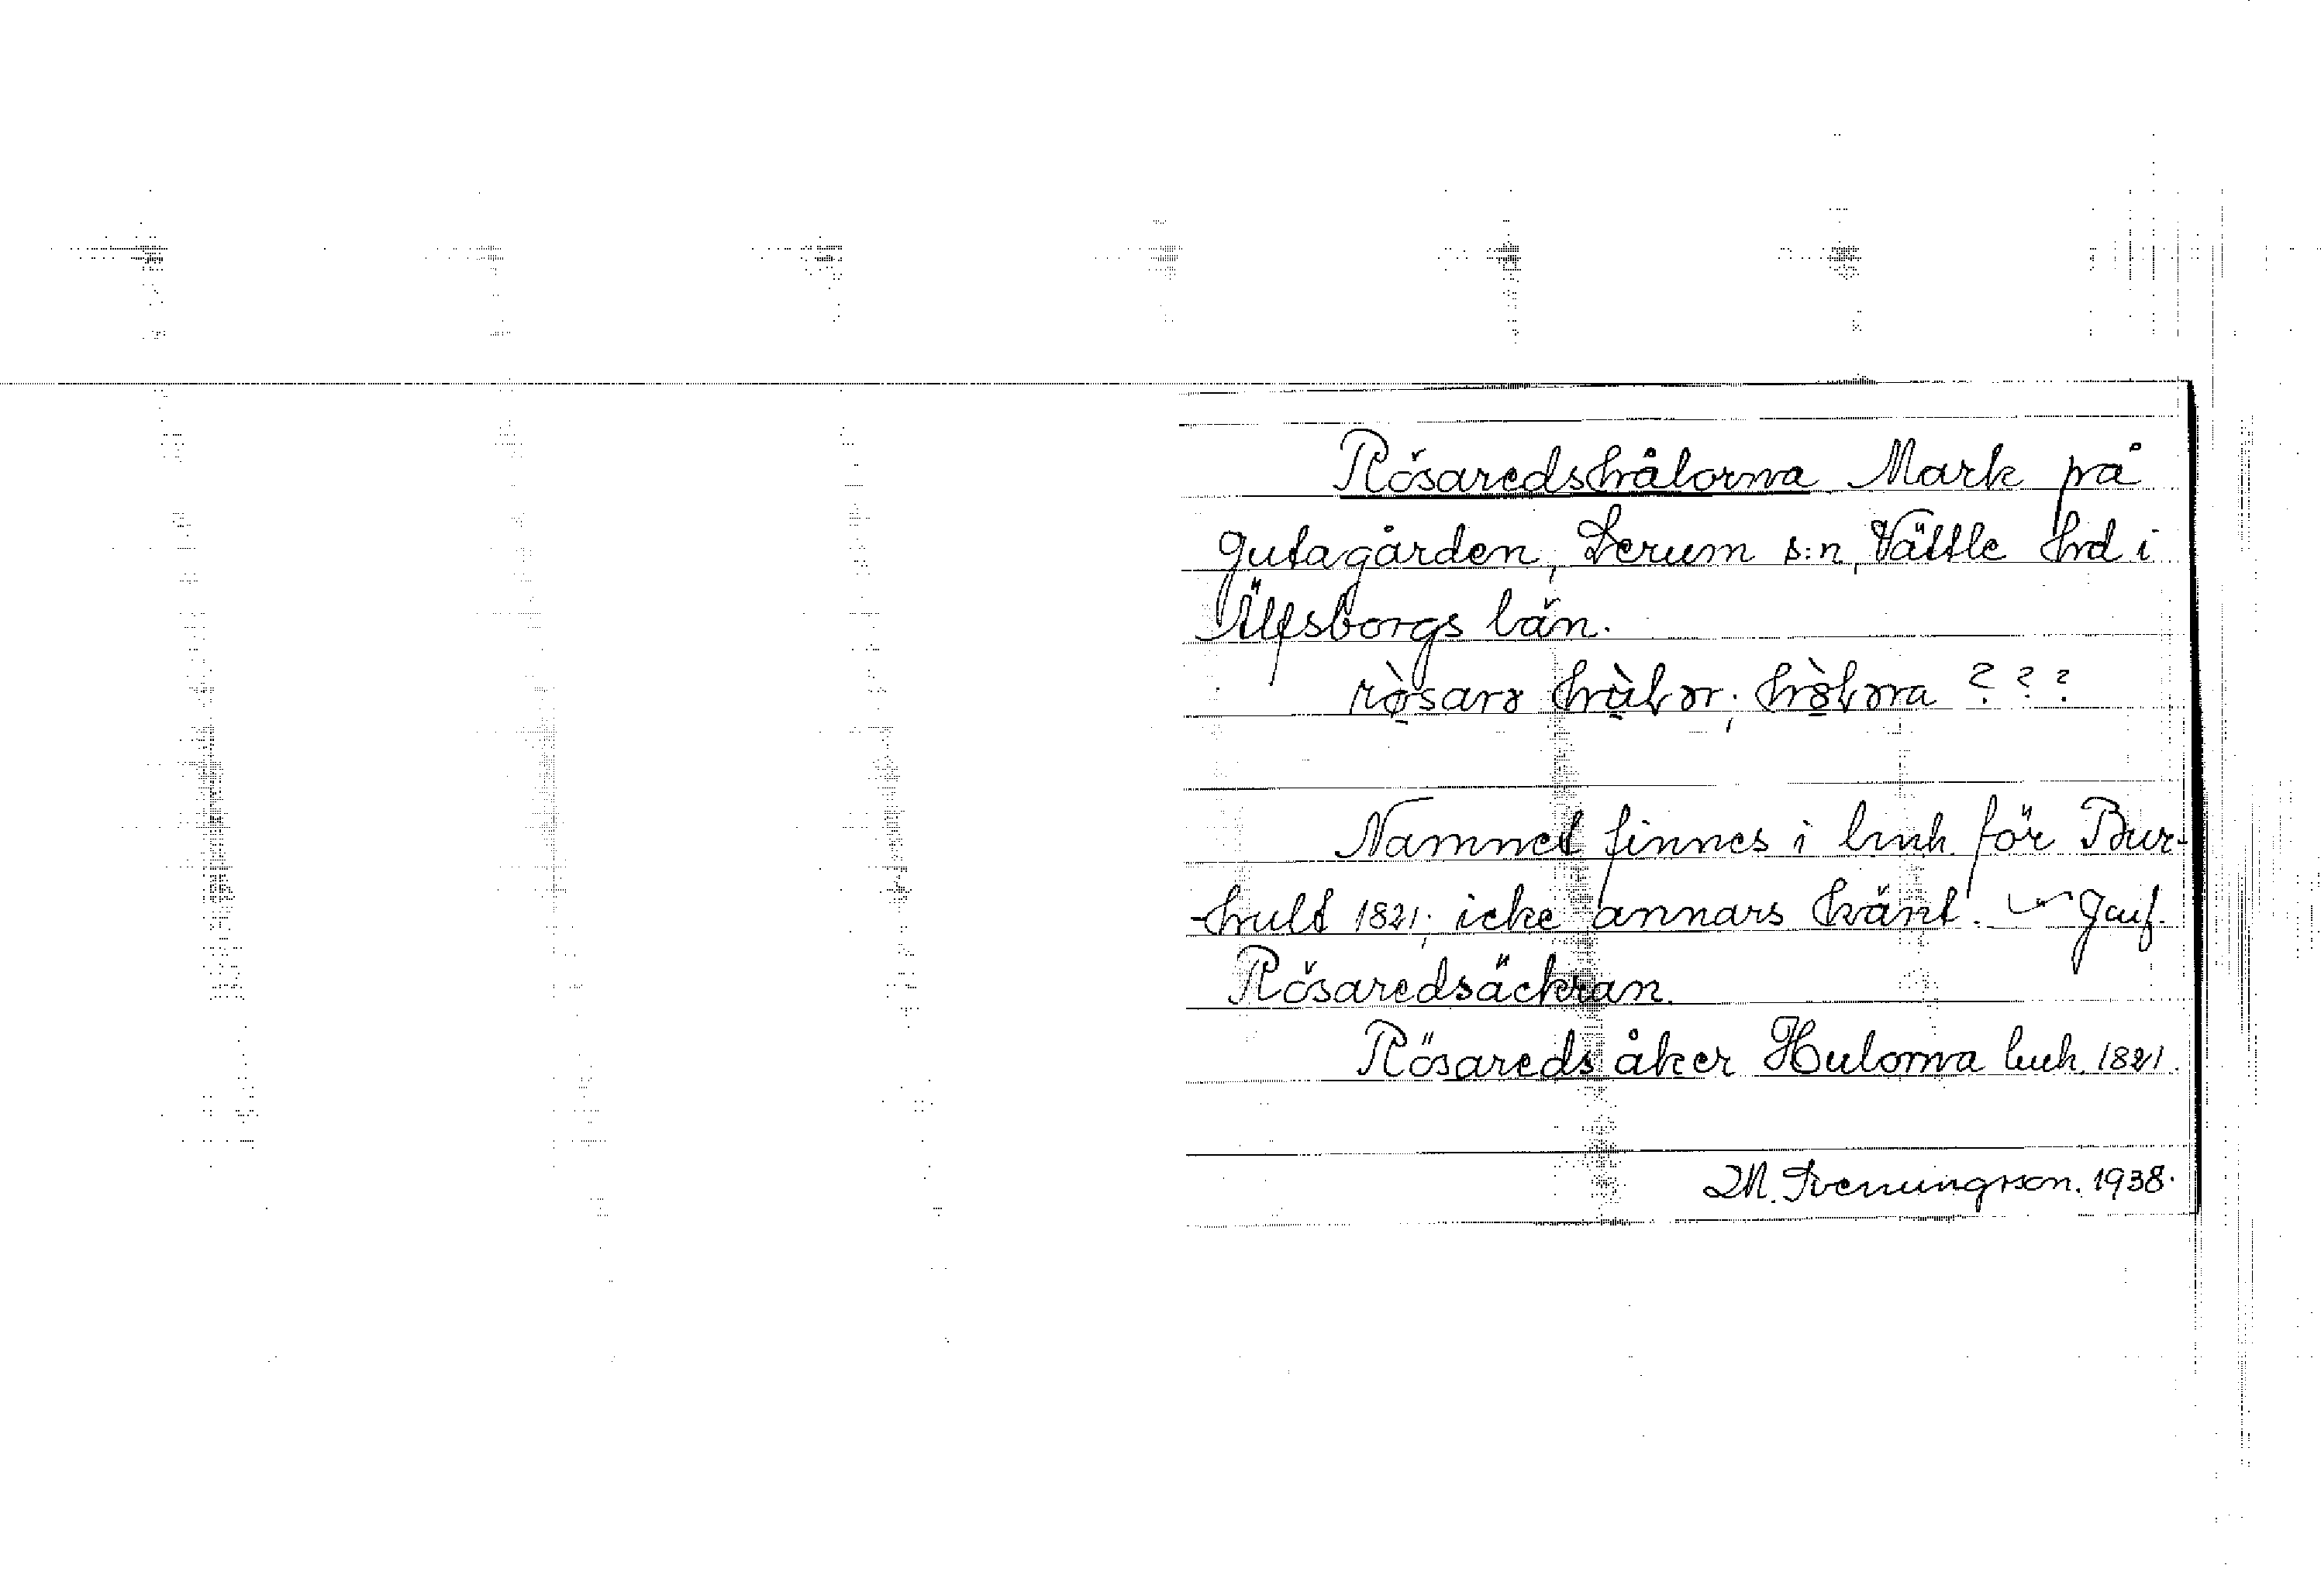 Rösaredshålorna Mark på
Gutagården, Lerum s:n, Vättle hrd i
Älfsborgs län.
hɷ̀lər; ???
Namnet finnes i lmh för Bur-
-hult 1821; icke annars känt. Jmf.
Rösaredsäckran.
Rösareds åker Hulorna lmh. 1821.
M. Svenungsson. 1938.